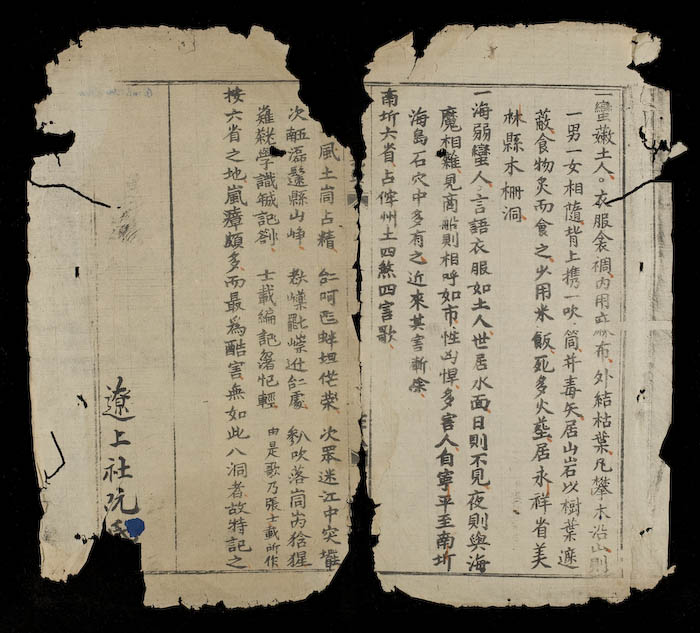 一蠻嫩土人。衣服衾裯內用麻布外結枯葉凡攀木沿山則
一男一女相隨背上攜一吹筒并毒矢居山岩以樹葉遮
蔽食物炙而食之少用米飯死多火塟居永祥省美
林縣木栅洞
一海弱蠻人言語衣服如土人世居水面日則不見夜則與海
魔相雜見商船則相呼如市性凶悍多害人自寧平至南圻
海島石穴中多有之近來其害漸除
南圻六省占俾州土四煞四害歌
風土峝占精 次眾迷江中突
次 縣山 吹落峝 猞猩
學識 記 士載編記 輕 由是歌乃張士載所作
按六省之地嵐瘴頗多而最爲酷害無如此八洞者故特記之
遼上社阮